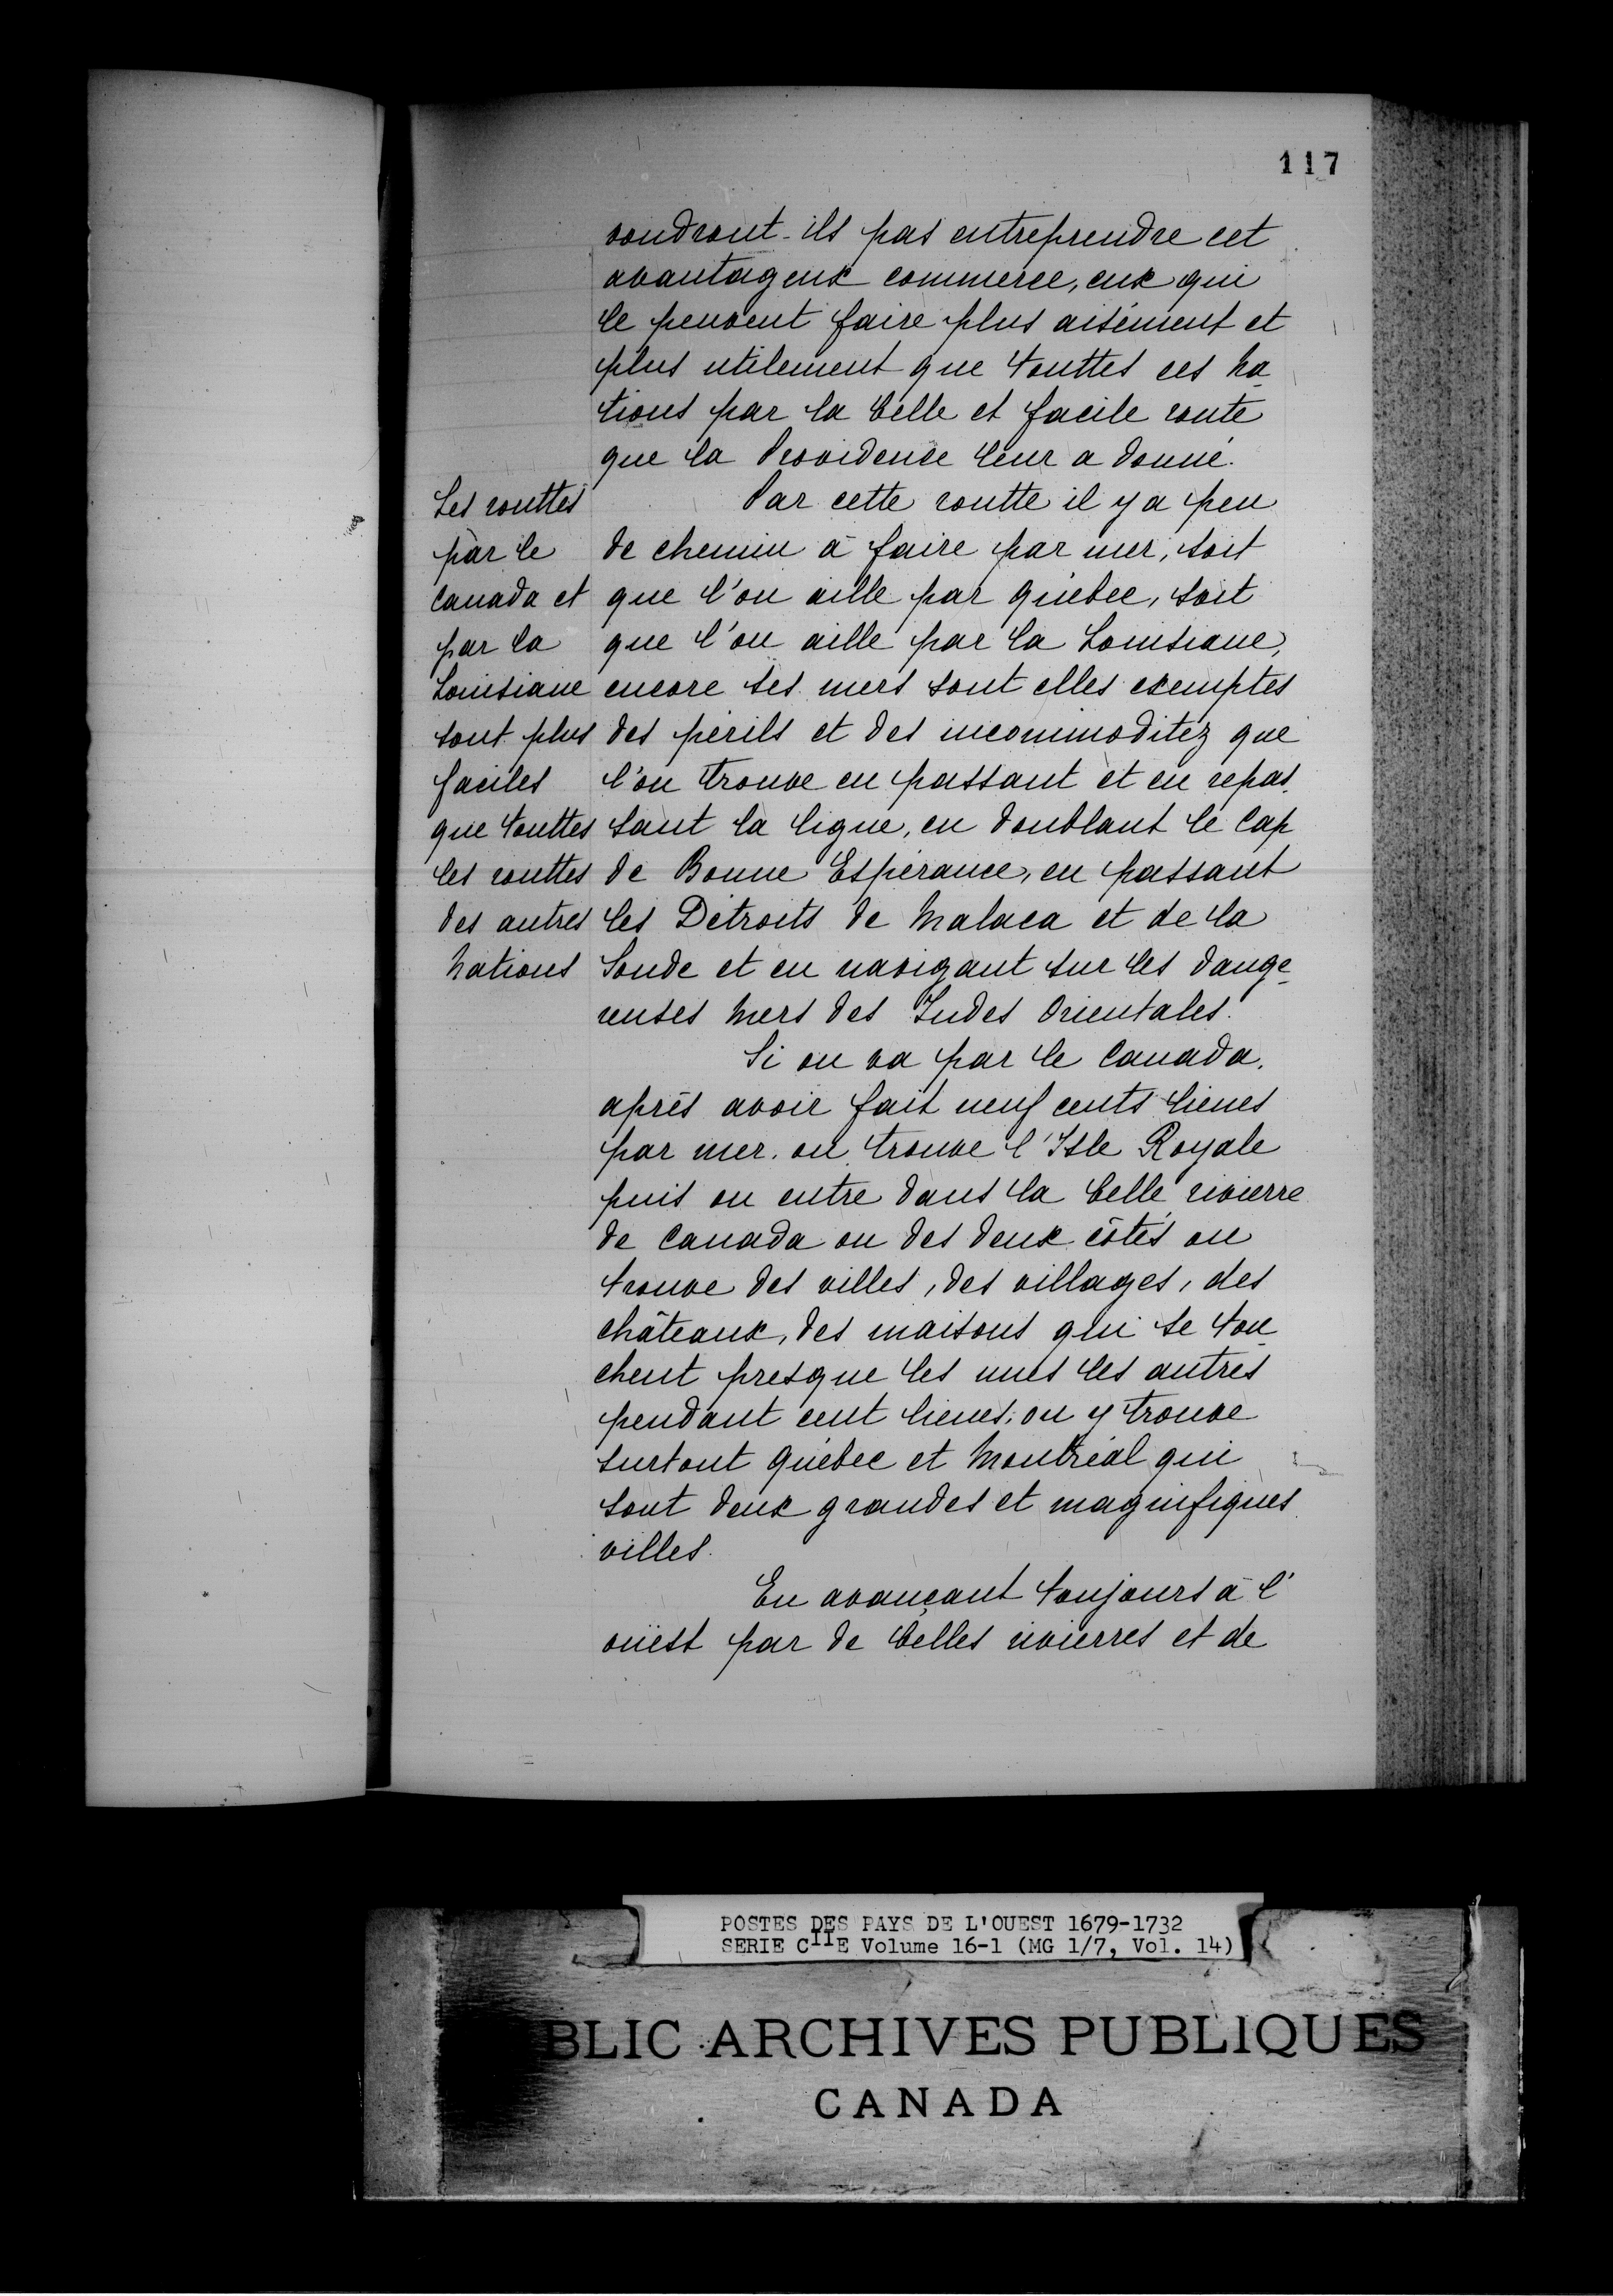 117
voudront-ils pas entreprendre cet
avantageux commerce, eux qui
le peuvent faire plus aisément et
plus utilement que touttes ces Na-
tions par la belle et facile route
que la Providence leur a donné.
Les routtes
par le
Canada et
par la
Louisiane
sont plus
faciles
que touttes
les routtes
des autres
Nations
Par cette routte il y a peu
de chemin à faire par mer, soit
que l'on aille par Québec, soit
que l'on aille par la Louisiane,
encore ses mers sont elles exemptes
des périls et des incommoditez que
l'on trouve en passant et en repas-
sant la ligne, en doublant le Cap
de Bonne Espérance, en passant
les Détroits de Malaca et de la
Sonde et en navigant sur les dange-
reuses Mers des Indes Orientales.
Si on va par le Canada,
après avoir fait neuf cents lieues
par mer. on trouve l'Isle Royale
puis on entre dans la belle rivierre
de Canada ou des deux côtés on
trouve des villes, des villages, des
châteaux, des maisons qui se tou-
chent presque les unes les autres
pendant cent lieues; on y trouve
surtout Québec et Montréal qui
sont deux grandes et magnifiques
villes.
En avançant toujours à l'
ouest par de belles rivierres et de
POSTES DES PAYS DE L'OUEST 1679-1732
SERIE CIIE Volume 16-1 (MG 1/7, Vol. 14)
BLIC ARCHIVES PUBLIQUES
CANADA